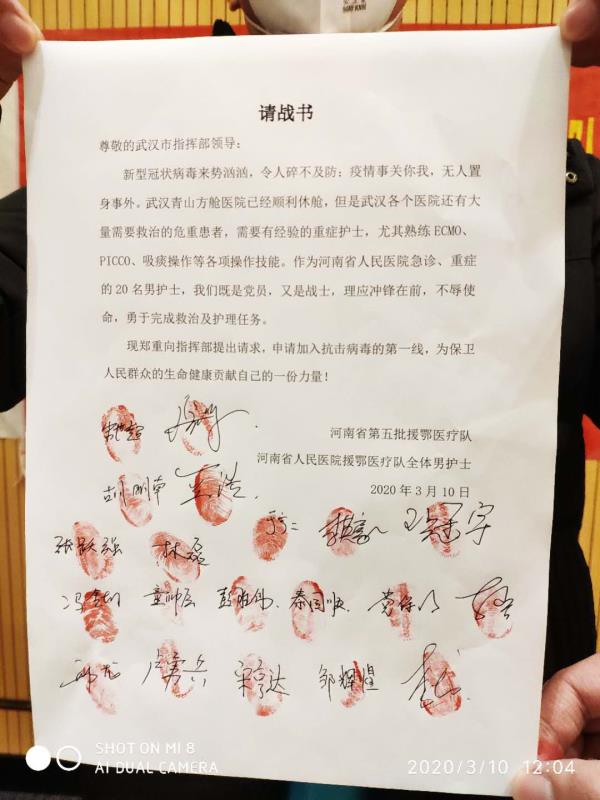 请战书
尊敬的武汉市指挥部领导：
新型冠状病毒来势汹汹，令人碎不及防；疫情事关你我，无人置
身事外。武汉青山方舱医院已经顺利休舱，但是武汉各个医院还有大
量需要救治的危重患者，需要有经验的重症护士，尤其熟练 ECMO、
PICCO、吸痰操作等各项操作技能。作为河南省人民医院急诊、重症
的 20 名男护士，我们既是党员，又是战士，理应冲锋在前，不辱使
命，勇于完成救治及护理任务。
现郑重向指挥部提出请求，申请加入抗击病毒的第一线，为保卫
人民群众的生命健康贡献自己的一份力量！
河南省第五批援鄂医疗队
河南省人民医院援鄂医疗队全体男护士
2020 年 3 月 10 日
王浩
张跃强 林磊
秦国顺
宋亨达
SHOT ON MI 8
AI DUAL CAMERA
2020/3/10 12:04